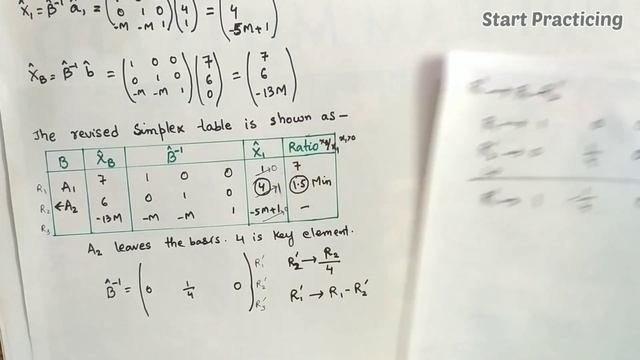 Start Practicing
X̂₁ = B̂⁻¹ â₁ = ( 0 1 0 ) ( 4 ) = ( 4 )
-M -M 1 1 -5M+1
X̂_B = B̂⁻¹ b̂ = ( 1 0 0 ) ( 7 ) = ( 7 )
0 1 0 6 6
-M -M 1 0 -13M
The revised simplex table is shown as —
B X̂_B B̂⁻¹ X̂₁ Ratio
R₁ A₁ 7 1 0 0 1→0 7
R₂ ←A₂ 6 0 1 0 4→1 1.5 Min
R₃ -13M -M -M 1 -5M+1→0 —
A₂ leaves the basis. 4 is key element.
R₁' R₂' → R₂/4
B̂⁻¹ = ( 0 1/4 0 ) R₂'
R₃' R₁' → R₁ - R₂'